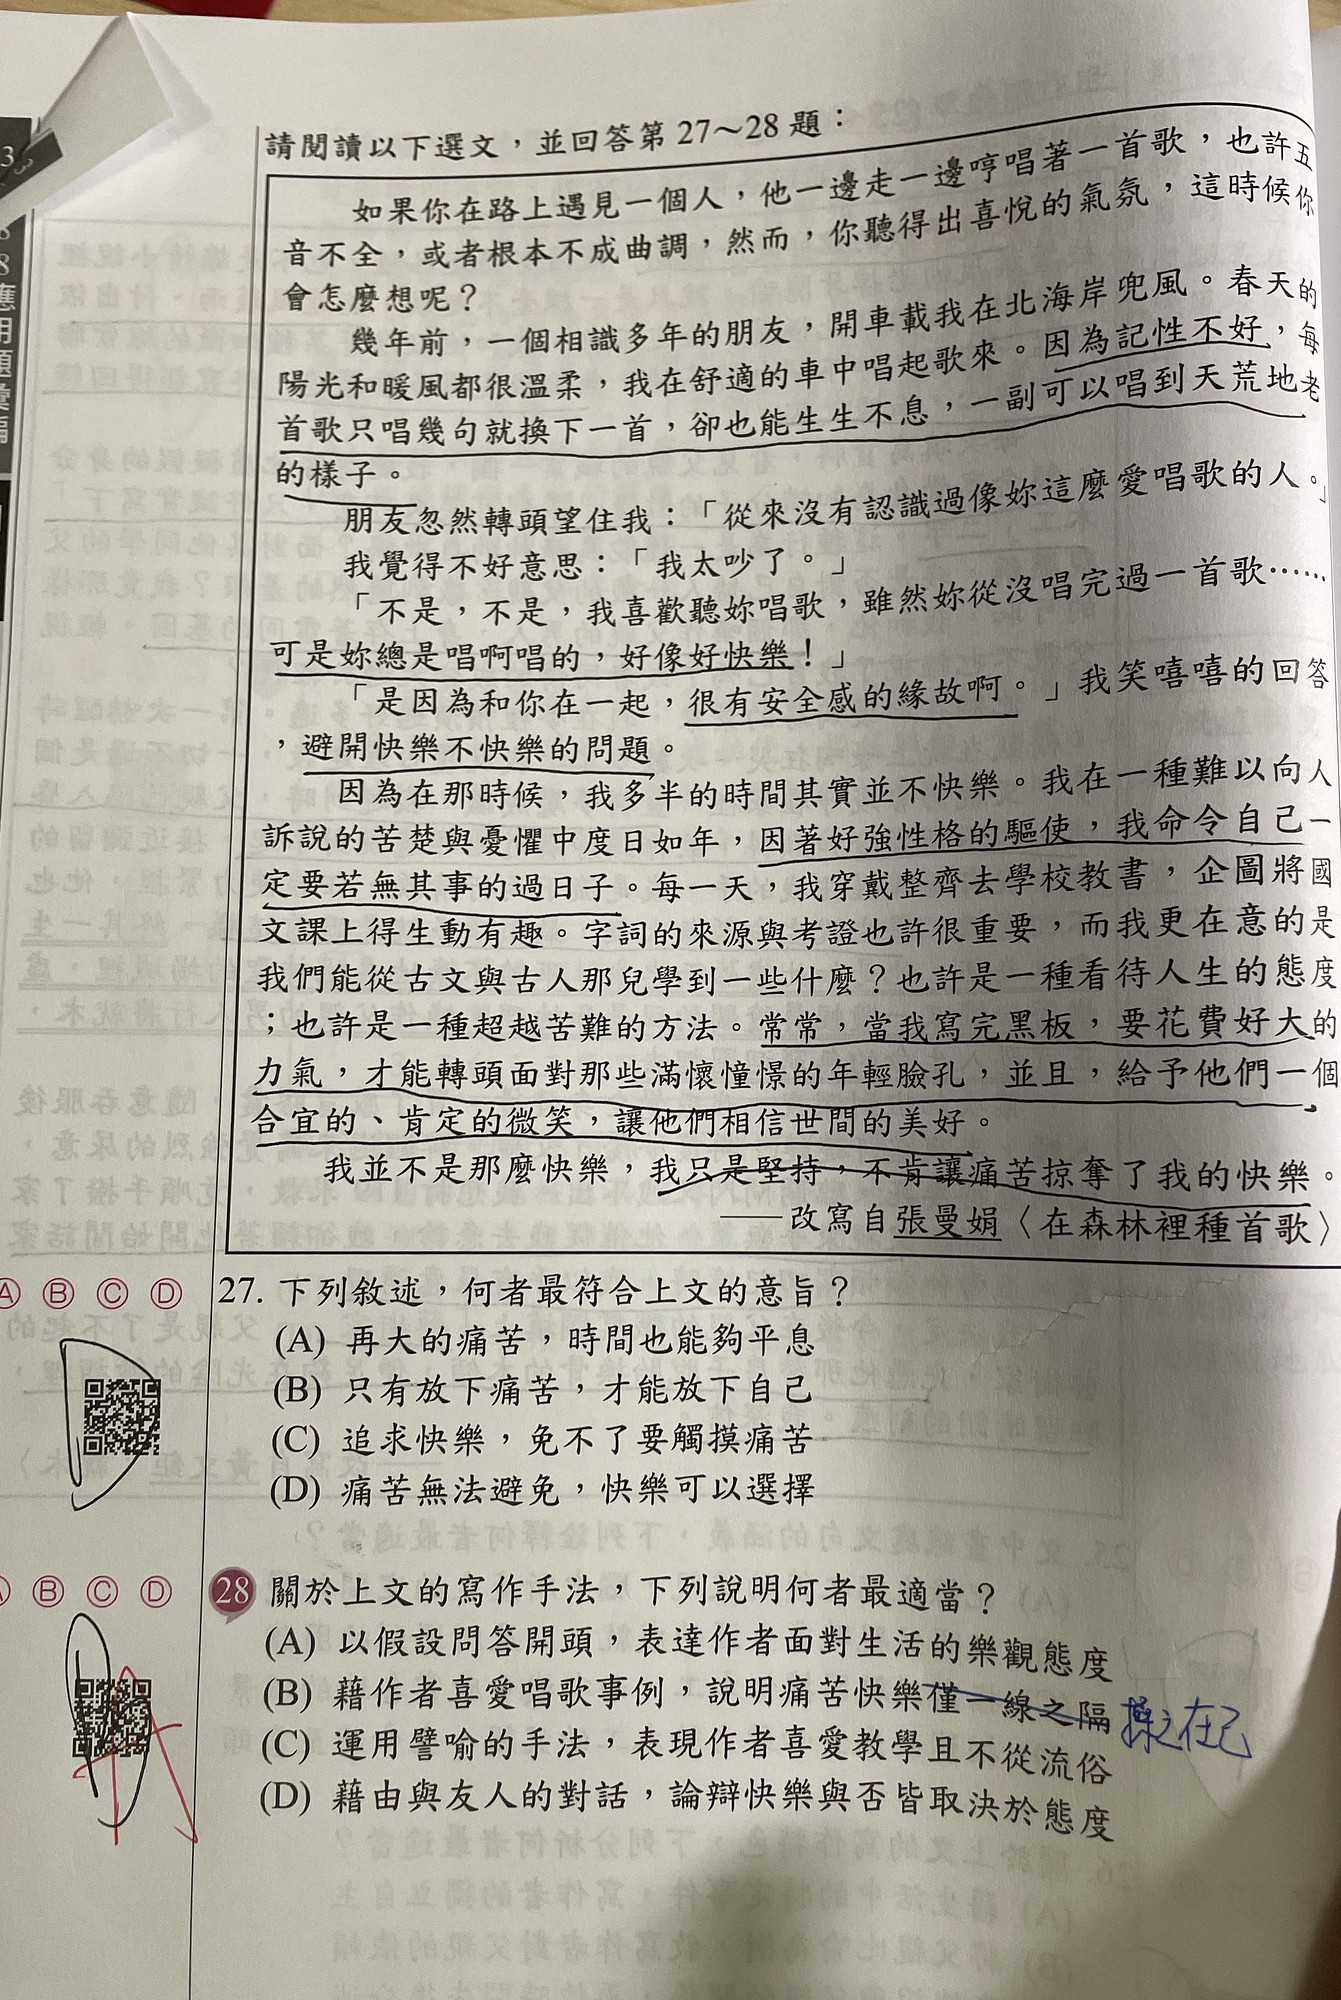 請閱讀以下選文，並回答第27～28題：
如果你在路上遇見一個人，他一邊走一邊哼唱著一首歌，也許五
音不全，或者根本不成曲調，然而，你聽得出喜悅的氣氛，這時候你
會怎麼想呢？
幾年前，一個相識多年的朋友，開車載我在北海岸兜風。春天的
陽光和暖風都很溫柔，我在舒適的車中唱起歌來。因為記性不好，每
首歌只唱幾句就換下一首，卻也能生生不息，一副可以唱到天荒地老
的樣子。
朋友忽然轉頭望住我：「從來沒有認識過像妳這麼愛唱歌的人。」
我覺得不好意思：「我太吵了。」
「不是，不是，我喜歡聽妳唱歌，雖然妳從沒唱完過一首歌……
可是妳總是唱啊唱的，好像好快樂！」
「是因為和你在一起，很有安全感的緣故啊。」我笑嘻嘻的回答
，避開快樂不快樂的問題。
因為在那時候，我多半的時間其實並不快樂。我在一種難以向人
訴說的苦楚與憂懼中度日如年，因著好強性格的驅使，我命令自己一
定要若無其事的過日子。每一天，我穿戴整齊去學校教書，企圖將國
文課上得生動有趣。字詞的來源與考證也許很重要，而我更在意的是
我們能從古文與古人那兒學到一些什麼？也許是一種看待人生的態度
；也許是一種超越苦難的方法。常常，當我寫完黑板，要花費好大的
力氣，才能轉頭面對那些滿懷憧憬的年輕臉孔，並且，給予他們一個
合宜的、肯定的微笑，讓他們相信世間的美好。
我並不是那麼快樂，我只是堅持，不肯讓痛苦掠奪了我的快樂。
——改寫自張曼娟〈在森林裡種首歌〉
Ⓐ Ⓑ Ⓒ Ⓓ 27. 下列敘述，何者最符合上文的意旨？
(A) 再大的痛苦，時間也能夠平息
(B) 只有放下痛苦，才能放下自己
(C) 追求快樂，免不了要觸摸痛苦
(D) 痛苦無法避免，快樂可以選擇
D
Ⓑ Ⓒ Ⓓ 28 關於上文的寫作手法，下列說明何者最適當？
(A) 以假設問答開頭，表達作者面對生活的樂觀態度
(B) 藉作者喜愛唱歌事例，說明痛苦快樂僅一線之隔 操之在己
(C) 運用譬喻的手法，表現作者喜愛教學且不從流俗
(D) 藉由與友人的對話，論辯快樂與否皆取決於態度
應用題彙編